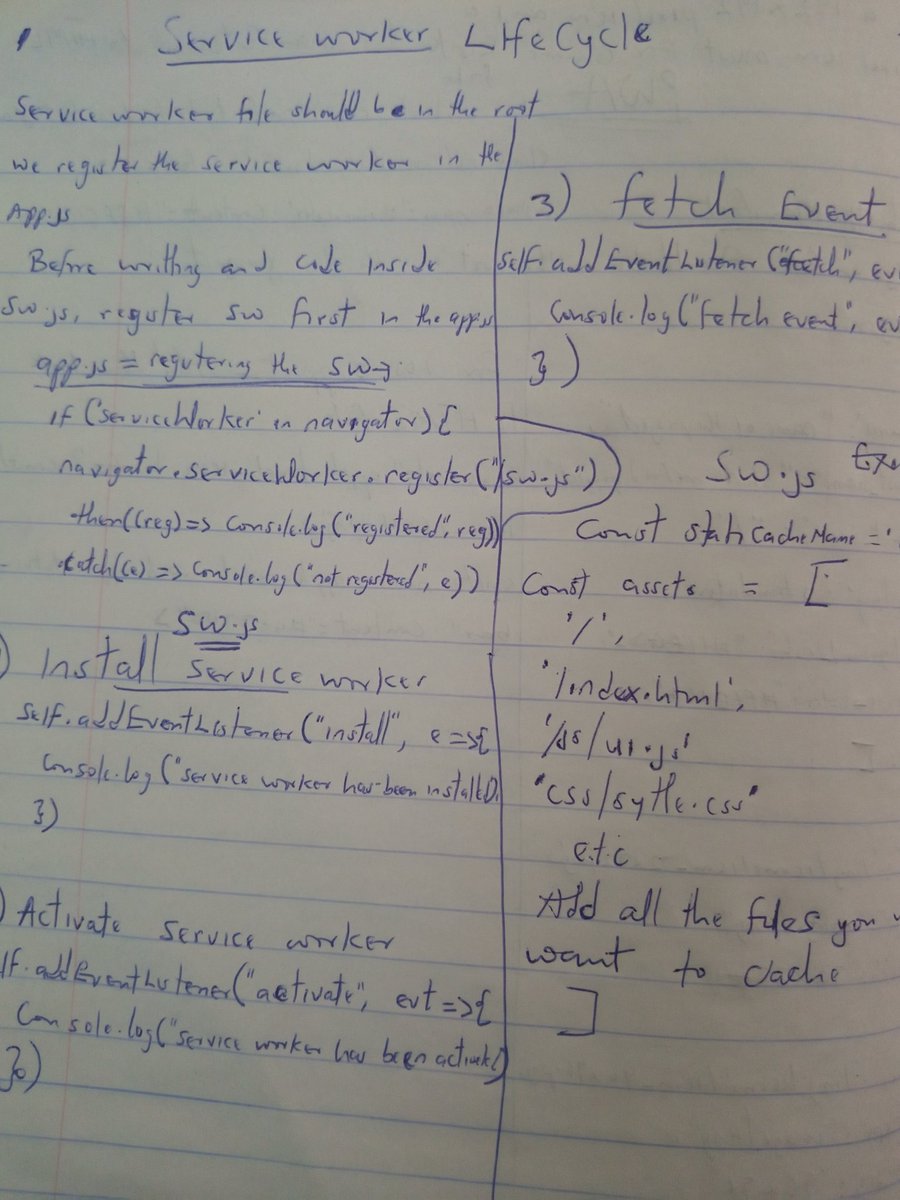 Service worker LifeCycle
Service worker file should be in the root
we register the service worker in the
App.js
Before writting and code inside
sw.js, register sw first in the app.js
app.js = registering the sw
if ('serviceWorker' in navigator) {
navigator.serviceWorker.register("/sw.js")
.then((reg) => console.log("registered", reg))
.catch((e) => console.log("not registered", e))
sw.js
) Install service worker
self.addEventListener("install", e =>{
console.log("service worker has been installD
})
) Activate service worker
lf.addEventListener("activate", evt =>{
console.log("service worker has been
})
3) fetch Event
self.addEventListener("fetch", ev
console.log("fetch event", ev
})
sw.js
Const staticCacheName = '
Const assets = [
'/',
'/index.html',
'/js/ui.js'
"css/sytle.css"
e.t.c
Add all the files you
want to cache
]